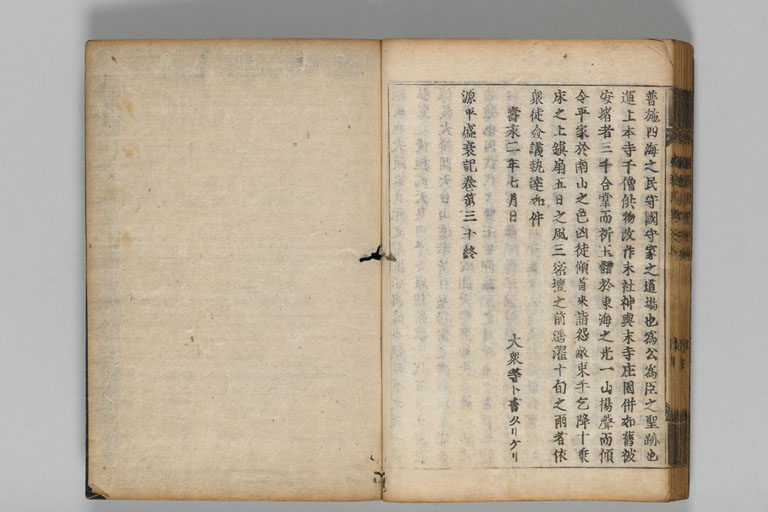 普施四海之民守國守家之道場也為公為臣之聖跡也
運上本寺千僧供物改作末社神輿末寺庄園併如舊被
安堵者三千合掌而祈玉體於東海之光一山揚聲而傾
令平家於南山之色凶徒傾首来詣怨敵束手乞降十乗
床之上鎮扇五日之風三密壇之前遥灌十旬之雨者依
衆徒僉議執達如件
壽永二年七月日
大衆等ト書タリケリ
源平盛衰記卷第三十終